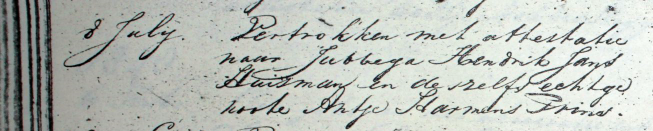 8 July. Vertrokken met attestatie
naar Jubbega Hendrik Jans
Huisman en deszelfs echtge
noote Antje Harmens Prins.